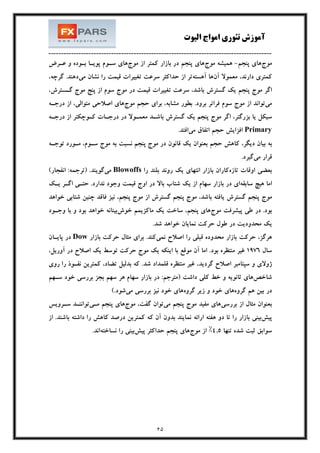 FXPARS
WWW.FXPARS.COM
آموزش تئوری امواج الیوت
موج‌های پنجم- همیشه موج‌های پنجم در بازار کمتر از موج‌های سوم پویا بوده و عرض
کمتری دارند، معمولا آن‌ها آهسته‌تر از حداکثر سرعت تغییرات قیمت را نشان می‌دهند. گرچه،
اگر موج پنجم یک گسترش باشد، سرعت تغییرات قیمت در موج سوم از پنج موج گسترش،
می‌تواند از موج سوم فراتر برود. بطور مشابه، برای حجم موج‌های اصلاحی متوالی، از درجه
سیکل یا بزرگتر، اگر موج پنجم یک گسترش باشد معمولا در درجات کوچکتر از درجه
Primary افزایش حجم اتفاق می‌افتد.
به بیان دیگر، کاهش حجم بعنوان یک قانون در موج پنجم نسبت به موج سوم، مورد توجه
قرار می‌گیرد.
بعضی اوقات تازه‌کاران بازار انتهای یک روند بلند را Blowoffs می‌گویند. (ترجمه: انفجار)
اما هیچ سابقه‌ای در بازار سهام از یک شتاب بالا در اوج قیمت وجود ندارد. حتی اگر یک
موج پنجم گسترش یافته باشد، موج پنجم گسترش از موج پنجم، نیز فاقد چنین شتابی خواهد
بود. در طی پیشرفت موج‌های پنجم، ساخت یک ماکزیمم خوش‌بینانه خواهد بود و با وجود
یک محدودیت در طول حرکت نمایان خواهد شد.
هرگز، حرکت بازار محدوده قبلی را اصلاح نمی‌کند. برای مثال حرکت بازار Dow در پایان
سال ۱۹۷۶ غیر منتظره بود. اما آن موقع با اینکه یک موج حرکت توسط یک اصلاح در آوریل،
ژولای و سپتامبر اصلاح گردید، غیر منتظره قلمداد شد. که بدلیل تضاد، کمترین نفوذ را روی
شاخص‌های ثانویه و خط کلی داشت (مترجم: در بازار سهام هر سهم بجز بررسی خود سهم
در بین هم گروه‌های خود و زیر گروه‌های خود نیز بررسی می‌شود.)
بعنوان مثال از بررسی‌های مفید موج پنجم می‌توان گفت، موج‌های پنجم می‌توانند سرویس
پیش‌بینی بازار را تا دو هفته ارائه نمایند بدون آن که کمترین درصد کاهش را داشته باشند. از
سوابق ثبت شده تنها ۴.۵٪ از موج‌های پنجم حداکثر پیش‌بینی را نساخته‌اند.
۴۵